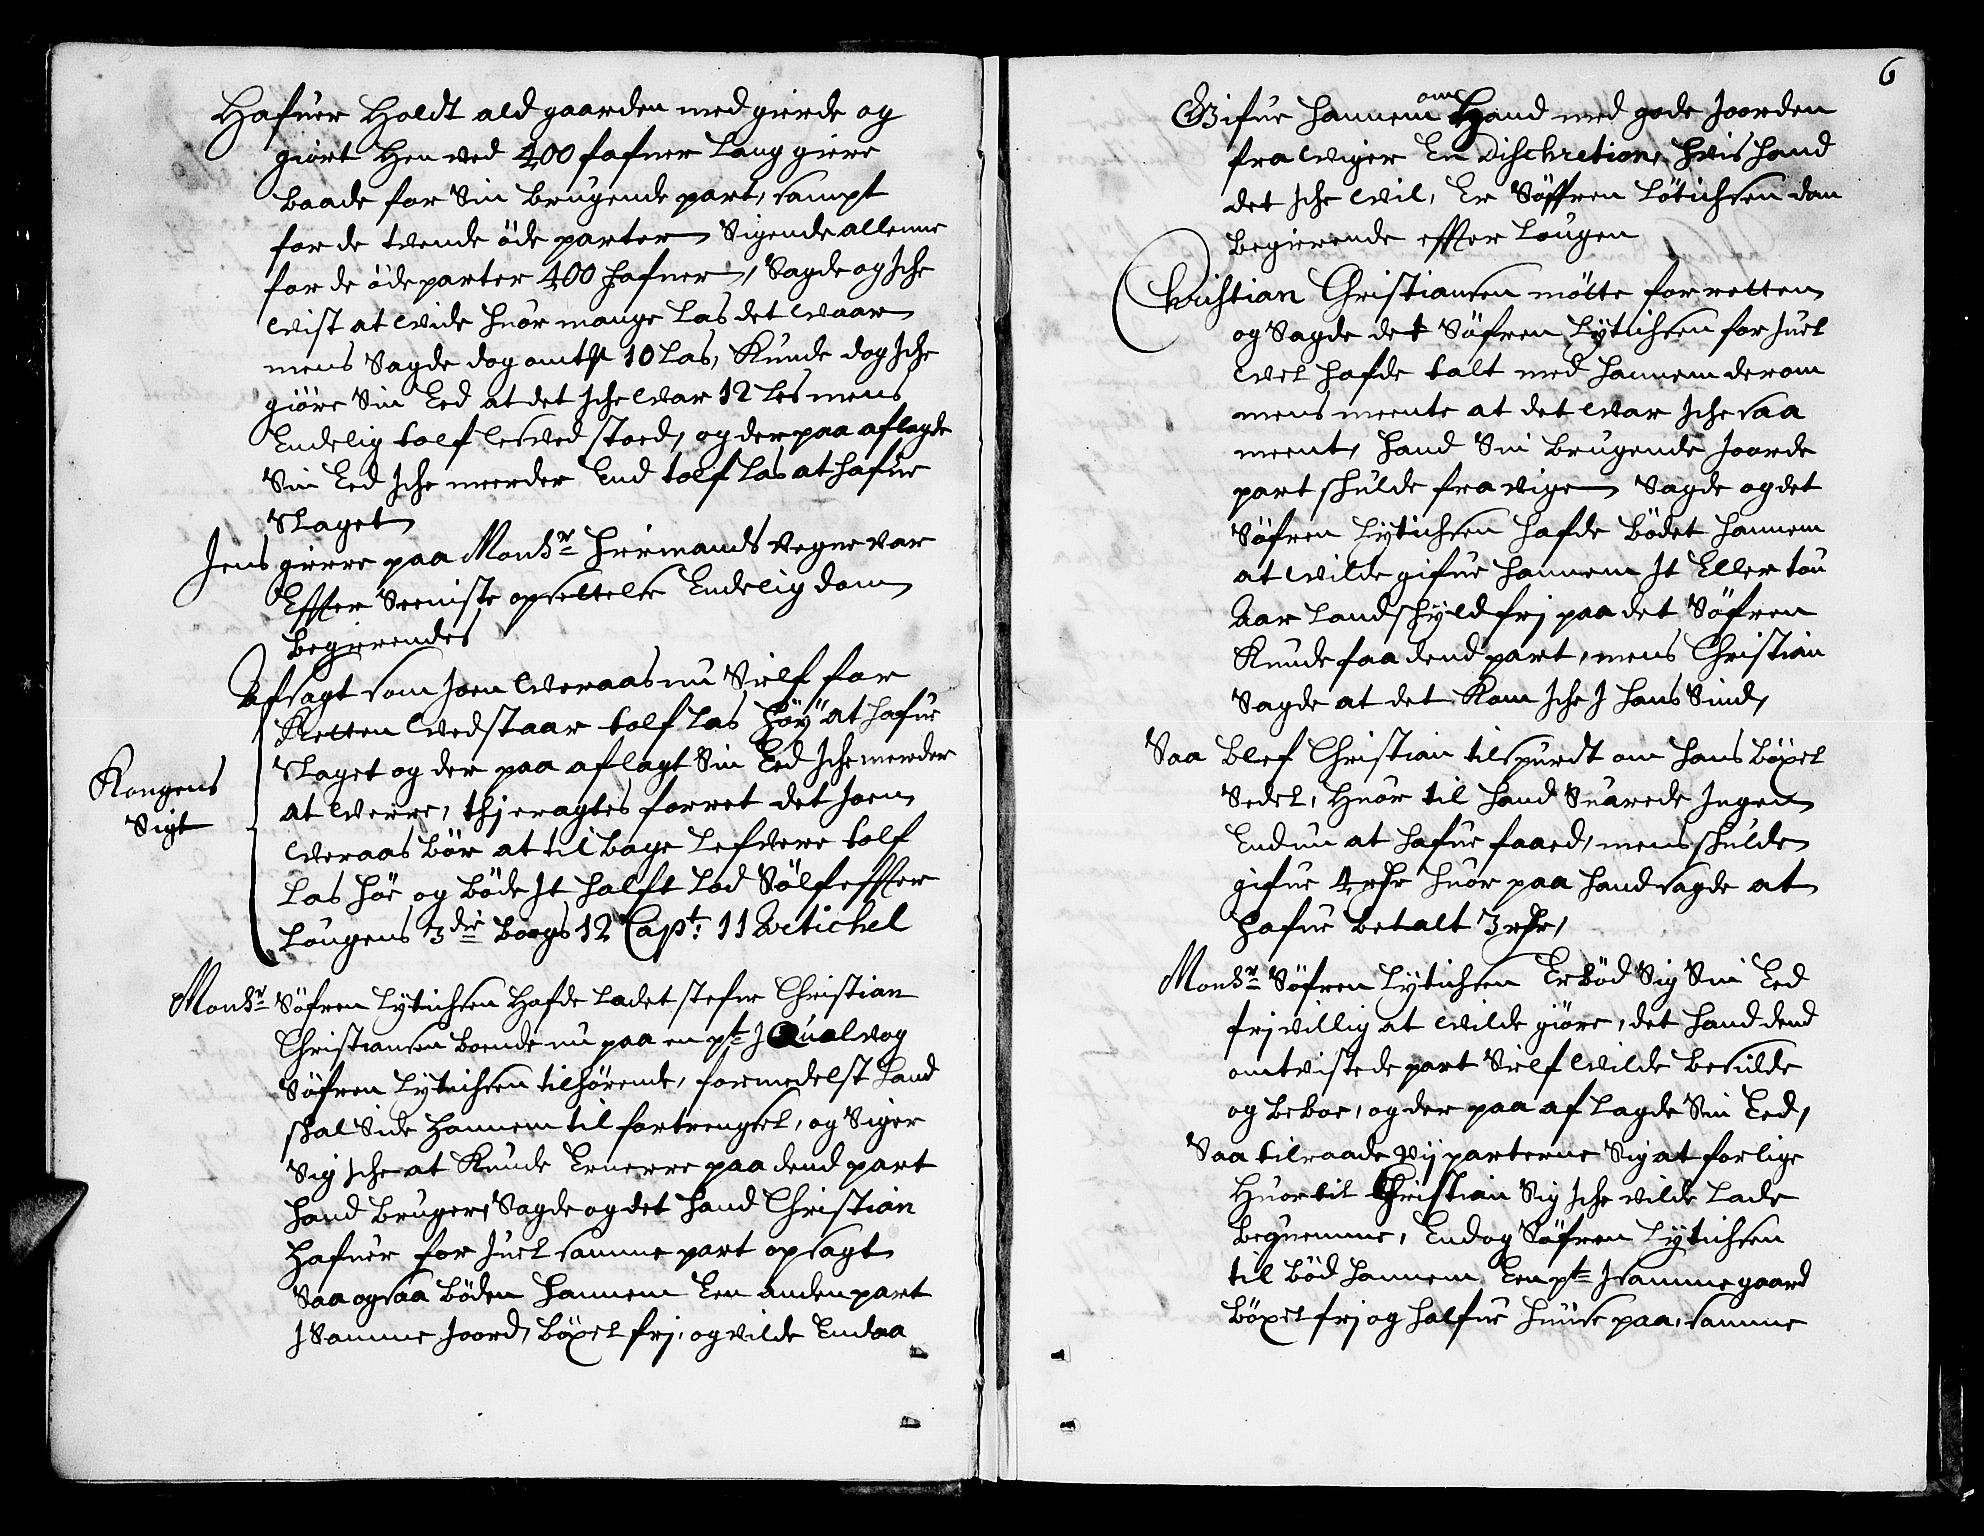 Hafuer Holdt ald gaarden med gierde og
giört Hen ved 400 fafner Lang giere
baade for Sin brugende part, sampt
for de tvende öde parter Sigende allenne
for de öde parter 400 fafner, Sagde og Iche
wist at wide huor mange Las det waar
mens Sagde dog omtr 10 Las, Kunde dog Iche
giöre Sin Eed at det Iche war 12 Les mens
Endelig tolf Les ved stoed, og der paa aflagde
Sin Eed Iche meerder End tolf Las at hafue
Slaget
Jens gierre paa Monsr Hermands vegne var
Effter Seeniste opsettelse Endelig dom
begierendes
Afsagt som Joen Weraas nu Sielf for
Retten Wedstaar tolf Las höy at hafue
Slaget og der paa aflagt Sin Eed Iche meerder
at werre, thj eragtes forret det Joen
Weraas bör at tilbage Lefvere tolf
Las höe og böde It halft Lod Sölf effter
Lougens 3die bogs 12 Capt: 11 Artichel
Kongens
Sigt
Monsr Söfren Lytichsen Hafde Ladet stefne Christian
Christiansen boende nu paa en pt J Qualvog
Söfren Lytichsen tilhörende, formedelst hand
skal Side hannem til fortrengsel, og Siger
Sig Iche at Kunde Ernerre paa dend part
hand bruger, Sagde og det hand Christian
Hafuer for Juel samme part opsagt
Saa ogsaa böden hannem Een anden part
J Samme Joord, böxel frj, og vilde Endaa
6
Gifue hannem om Hand med gode Joorden
fra wiger En Dischretion, hvis hand
det Iche wil, Er Söffren Lötichsen dom
begierende effter Lougen
Christian Christiansen mötte for retten
og Sagde det Söfren Lytichsen for Juel
wel hafde talt med hannem derom
mens meente at det war Iche saa
meent, hand Sin brugende Joorde
part skulde fra vige Sagde og det
Söfren Lytichsen hafde bödet hannem
at wilde gifue hannem It Eller tou
Aar Landskyld frj paa det Söfren
Kunde faa dend part, mens Christian
Sagde at det Kom Iche J hans Sind,
Saa blef Christian tilspurdt om hans böxel
Sedel, huor til hand Suarede Ingen
Endnu at hafue faaed, mens skulde
gifue 4 rdr huor paa hand sagde at
hafue betalt 3 rdr,
Monsr Söfren Lytichsen Erböd Sig Sin Eed
frj villig at wilde giöre, det hand dend
omtvistede part Sielf wilde besidde
og beboe, og der paa aflagde Sin Eed,
Saa tilraade vij parterne Sig at forlige
Huor til Christian Sig Iche vilde Lade
bequemme, Endog Söfren Lytichsen
til böd hannem Een pt J samme gaard
böxel frj og halfue huuse paa, samme